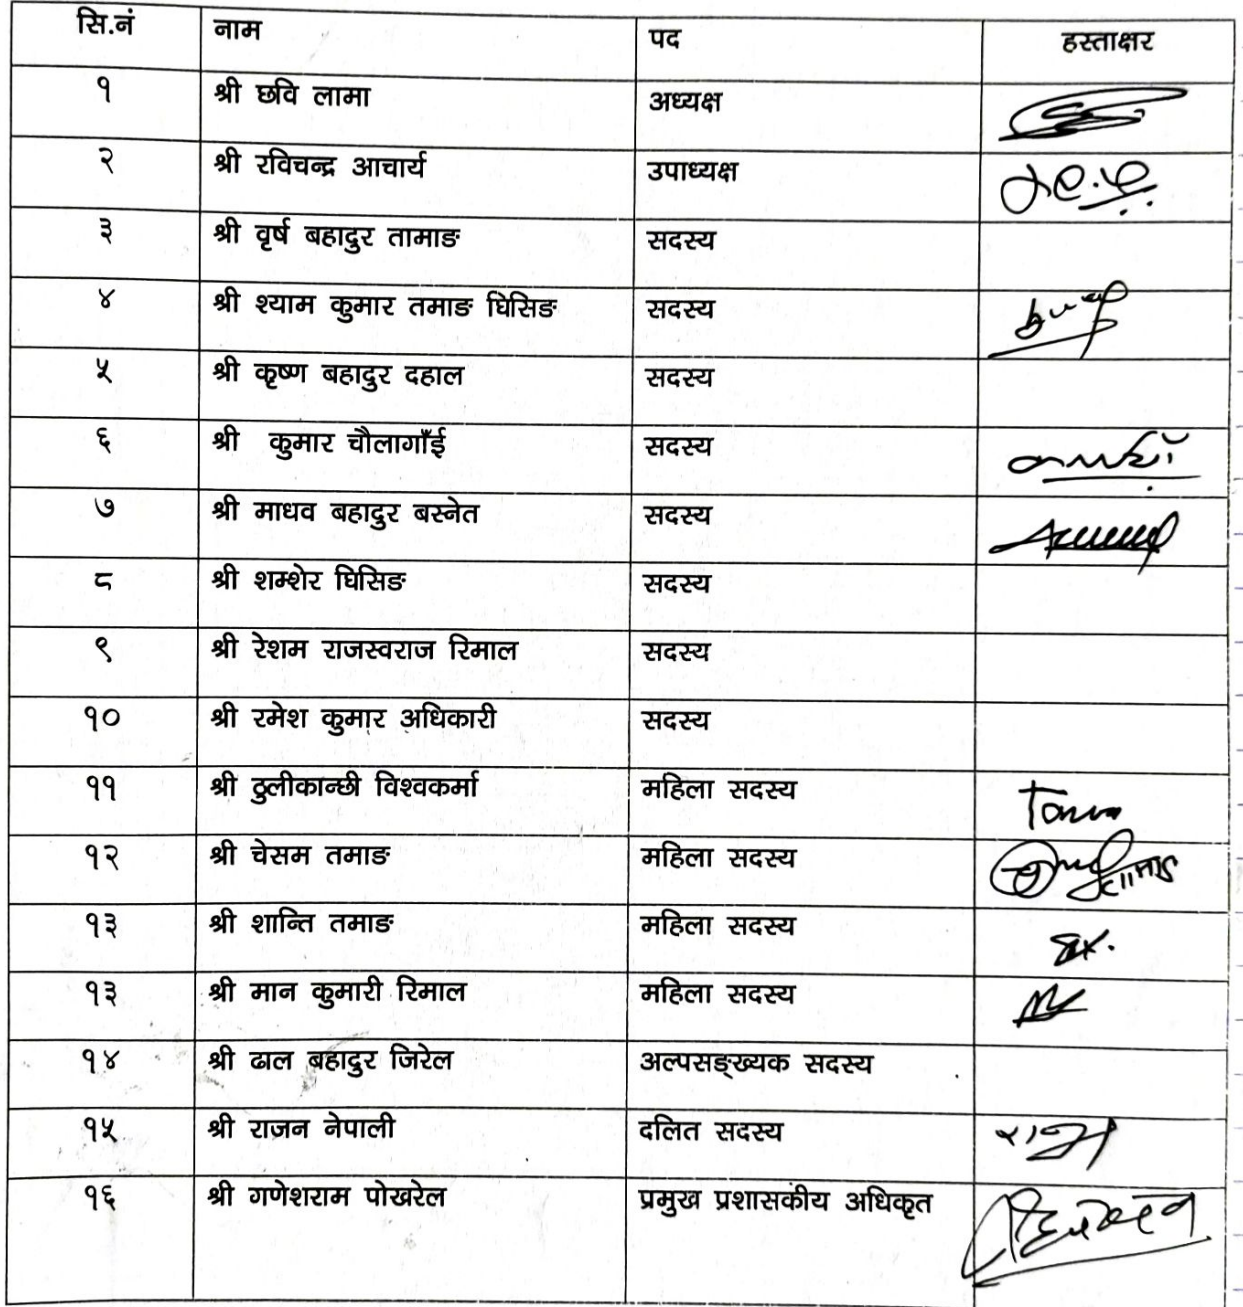 सि.नं नाम पद हस्ताक्षर
१ श्री छवि लामा अध्यक्ष
२ श्री रविचन्द्र आचार्य उपाध्यक्ष
३ श्री वृर्ष बहादुर तामाङ सदस्य
४ श्री श्याम कुमार तमाङ घिसिङ सदस्य
५ श्री कृष्ण बहादुर दहाल सदस्य
६ श्री कुमार चौलागाँई सदस्य
७ श्री माधव बहादुर बस्नेत सदस्य
८ श्री शम्शेर घिसिङ सदस्य
९ श्री रेशम राजस्वराज रिमाल सदस्य
१० श्री रमेश कुमार अधिकारी सदस्य
११ श्री ठुलीकान्छी विश्वकर्मा महिला सदस्य
१२ श्री चेसम तमाङ महिला सदस्य
१३ श्री शान्ति तमाङ महिला सदस्य
१३ श्री मान कुमारी रिमाल महिला सदस्य
१४ श्री ढाल बहादुर जिरेल अल्पसङ्ख्यक सदस्य
१५ श्री राजन नेपाली दलित सदस्य
१६ श्री गणेशराम पोखरेल प्रमुख प्रशासकीय अधिकृत